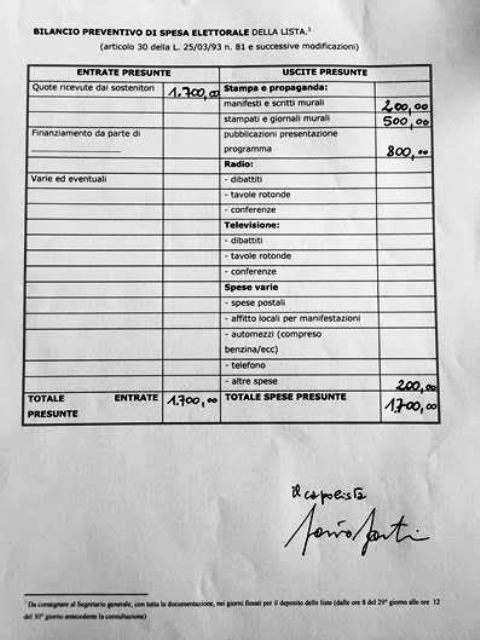 BILANCIO PREVENTIVO DI SPESA ELETTORALE DELLA LISTA.¹
(articolo 30 della L. 25/03/93 n. 81 e successive modificazioni)
ENTRATE PRESUNTE USCITE PRESUNTE
Quote ricevute dai sostenitori 1.700,00 Stampa e propaganda:
manifesti e scritti murali 200,00
stampati e giornali murali 500,00
Finanziamento da parte di pubblicazioni presentazione
programma 800,00
Radio:
Varie ed eventuali - dibattiti
- tavole rotonde
- conferenze
Televisione:
- dibattiti
- tavole rotonde
- conferenze
Spese varie
- spese postali
- affitto locali per manifestazioni
- automezzi (compreso
benzina/ecc)
- telefono
- altre spese 200,00
TOTALE ENTRATE 1.700,00 TOTALE SPESE PRESUNTE 1.700,00
PRESUNTE
il capolista
¹ Da consegnare al Segretario generale, con tutta la documentazione, nei giorni fissati per il deposito delle liste (dalle ore 8 del 29° giorno alle ore 12
del 30° giorno antecedente la consultazione)